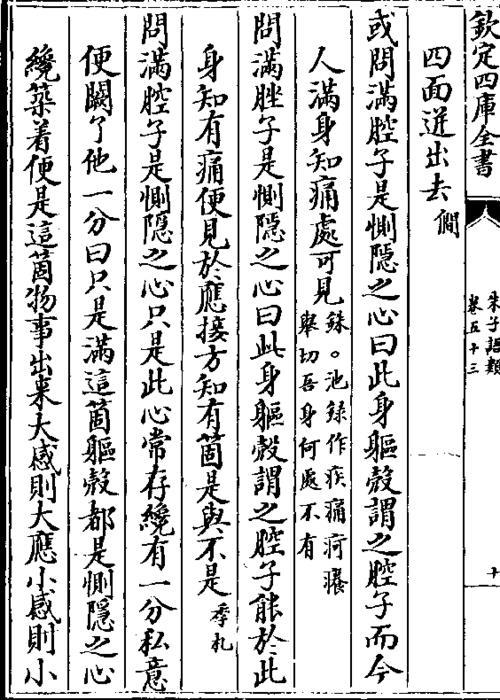 欽定四庫全書
朱子語類
卷五十三
十
四面迸出去僩
或問滿腔子是惻隱之心曰此身軀殼謂之腔子而今
人滿身知痛處可見銖○池録作疾痛疴癢
舉切吾身何處不有
問滿腔子是惻隱之心曰此身軀殼謂之腔子能於此
身知有痛便見於應接方知有箇是與不是季札
問滿腔子是惻隱之心只是此心常存纔有一分私意
便闕了他一分曰只是滿這箇軀殼都是惻隱之心
纔築着便是這箇物事出来大感則大應小感則小